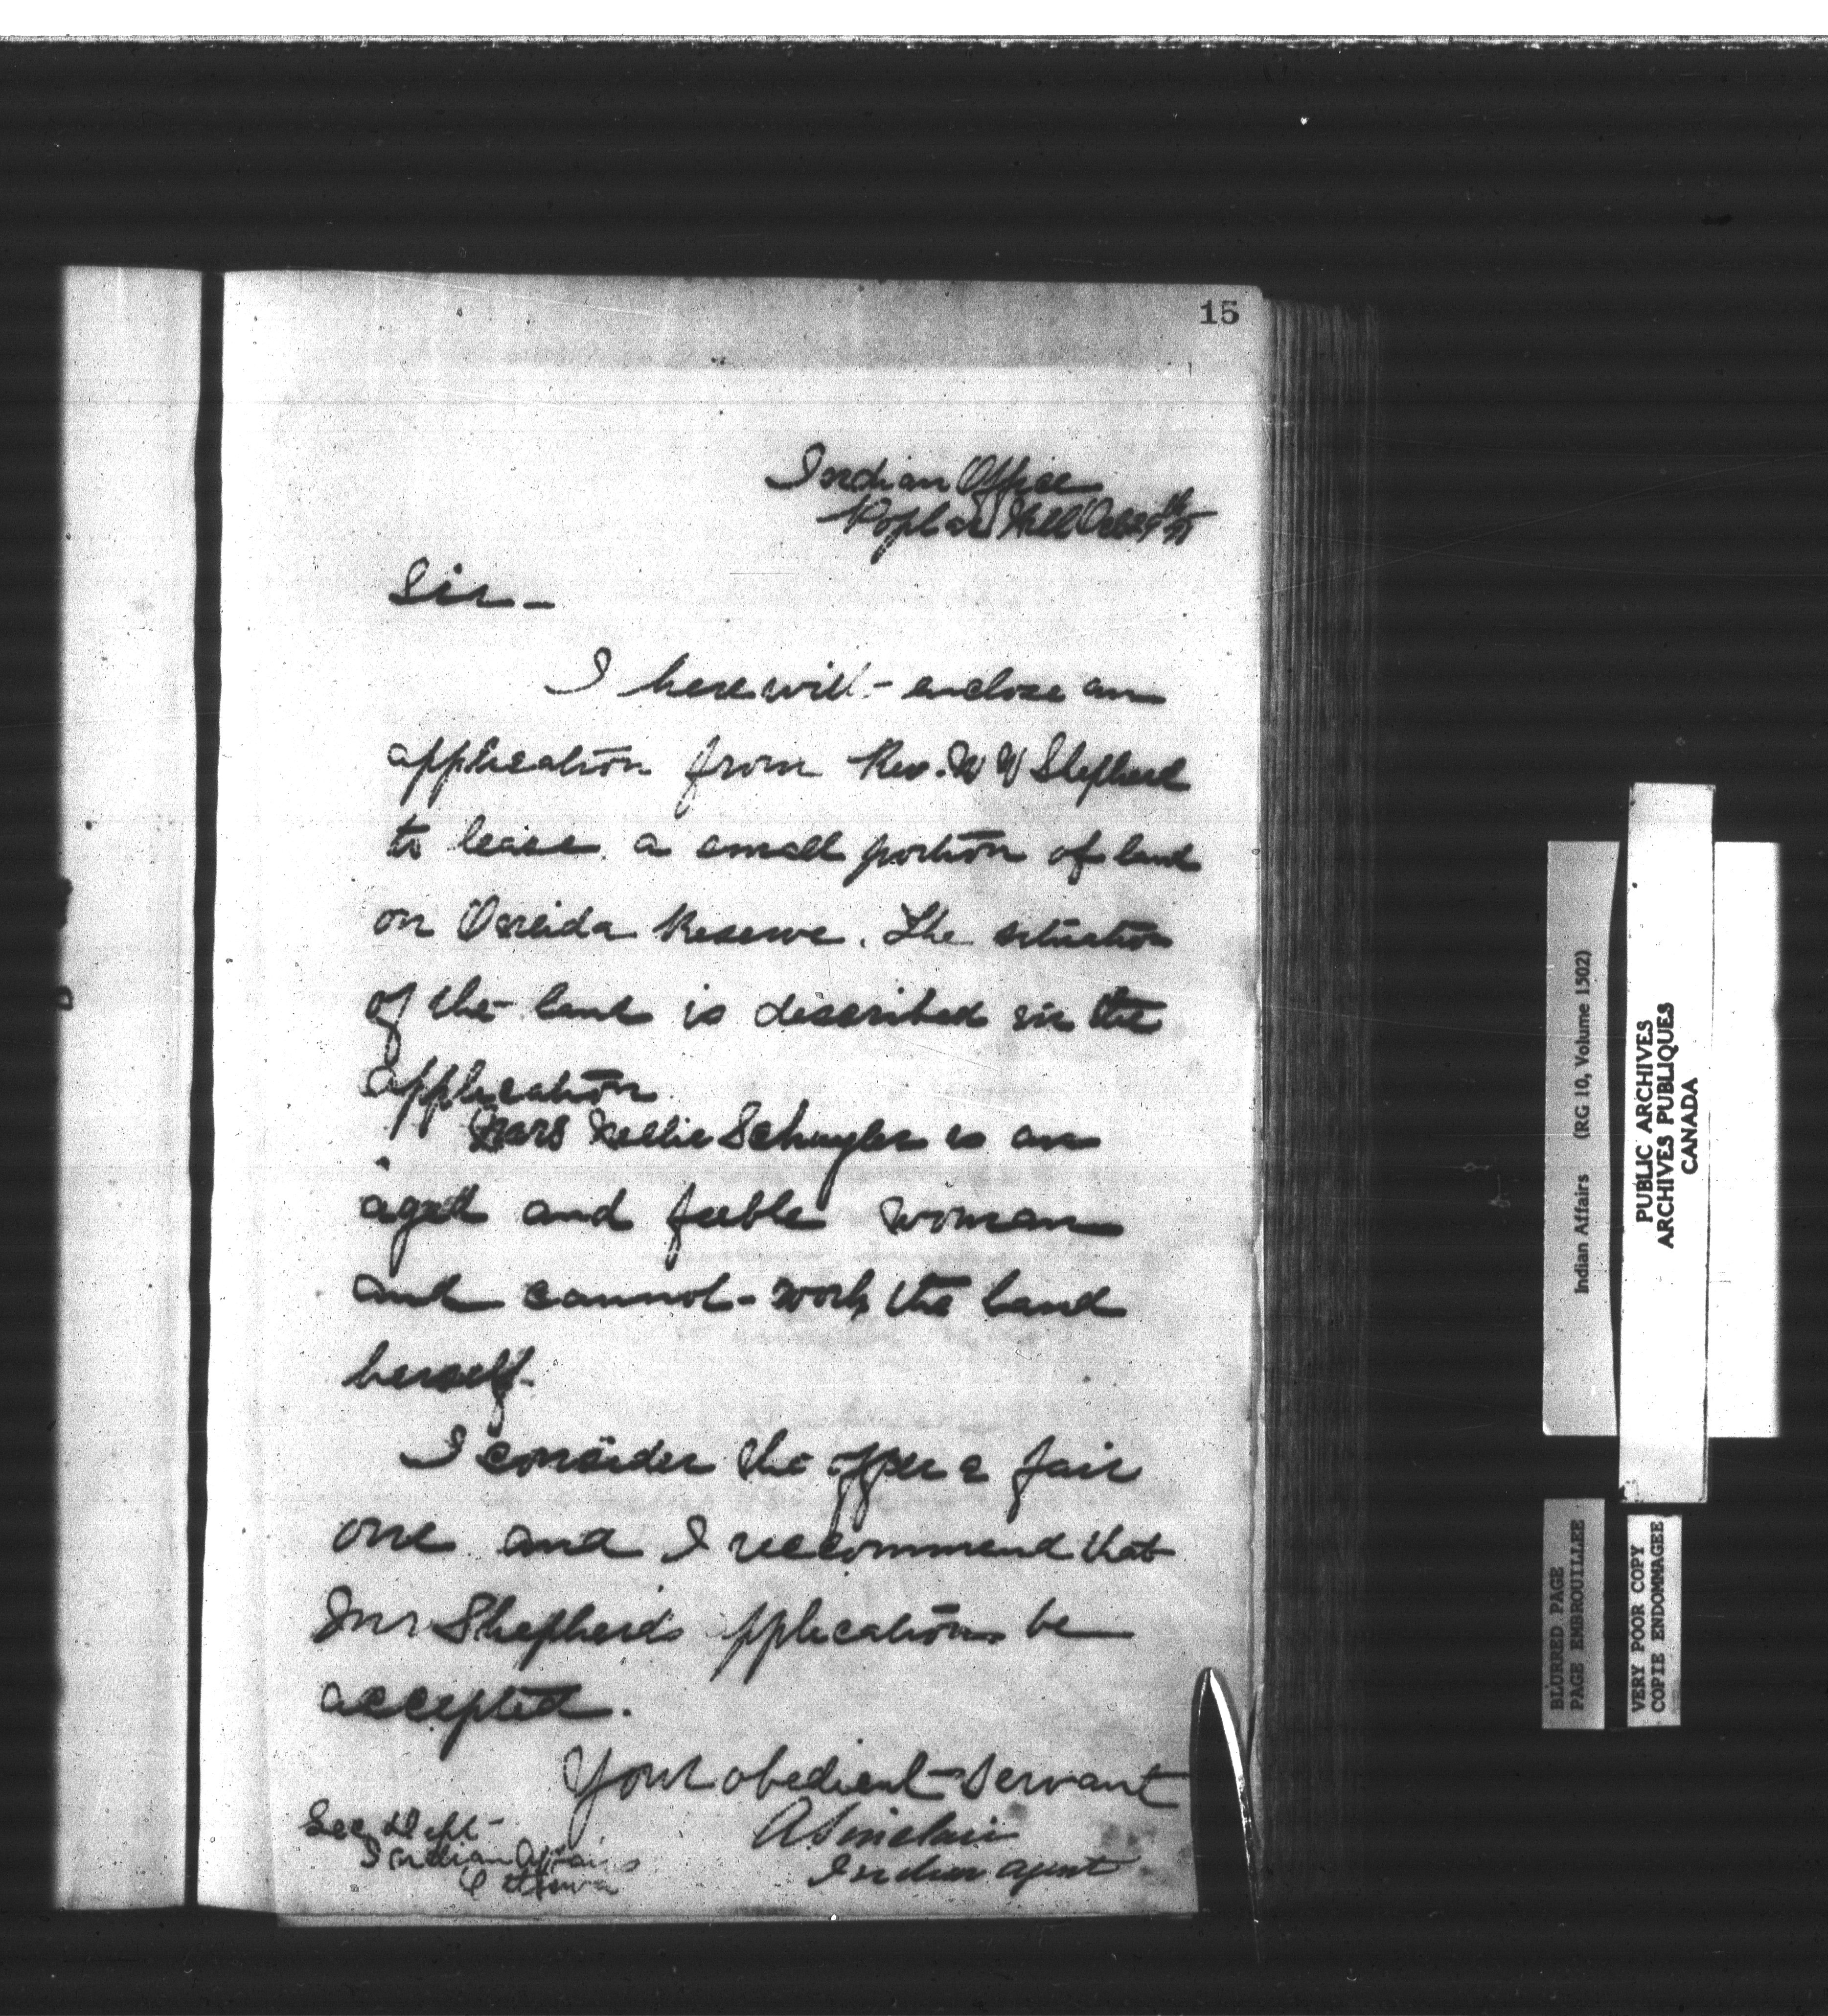 15
Indian Office
Poplar Hill Oct
Sir -
I herewith enclose an
application from Rev. W W Shepherd
to lease a small portion of land
on Oneida Reserve. The situation
of the land is described in the
application
Mrs Nellie Schuyler is an
aged and feeble woman
and cannot work the land
herself.
I consider the offer a fair
one and I recommend that
Mr Shepherds pplication be
accepted.
Your obedient Servant
A Sinclair
Indian agent
Sec Dept
Indian Affairs
Ottawa
Indian Affairs (RG 10, Volume 1502)
PUBLIC ARCHIVES
ARCHIVES PUBLIQUES
CANADA
BLURRED PAGE
PAGE EMBROUILLEE
VERY POOR COPY
COPIE ENDOMMAGEE